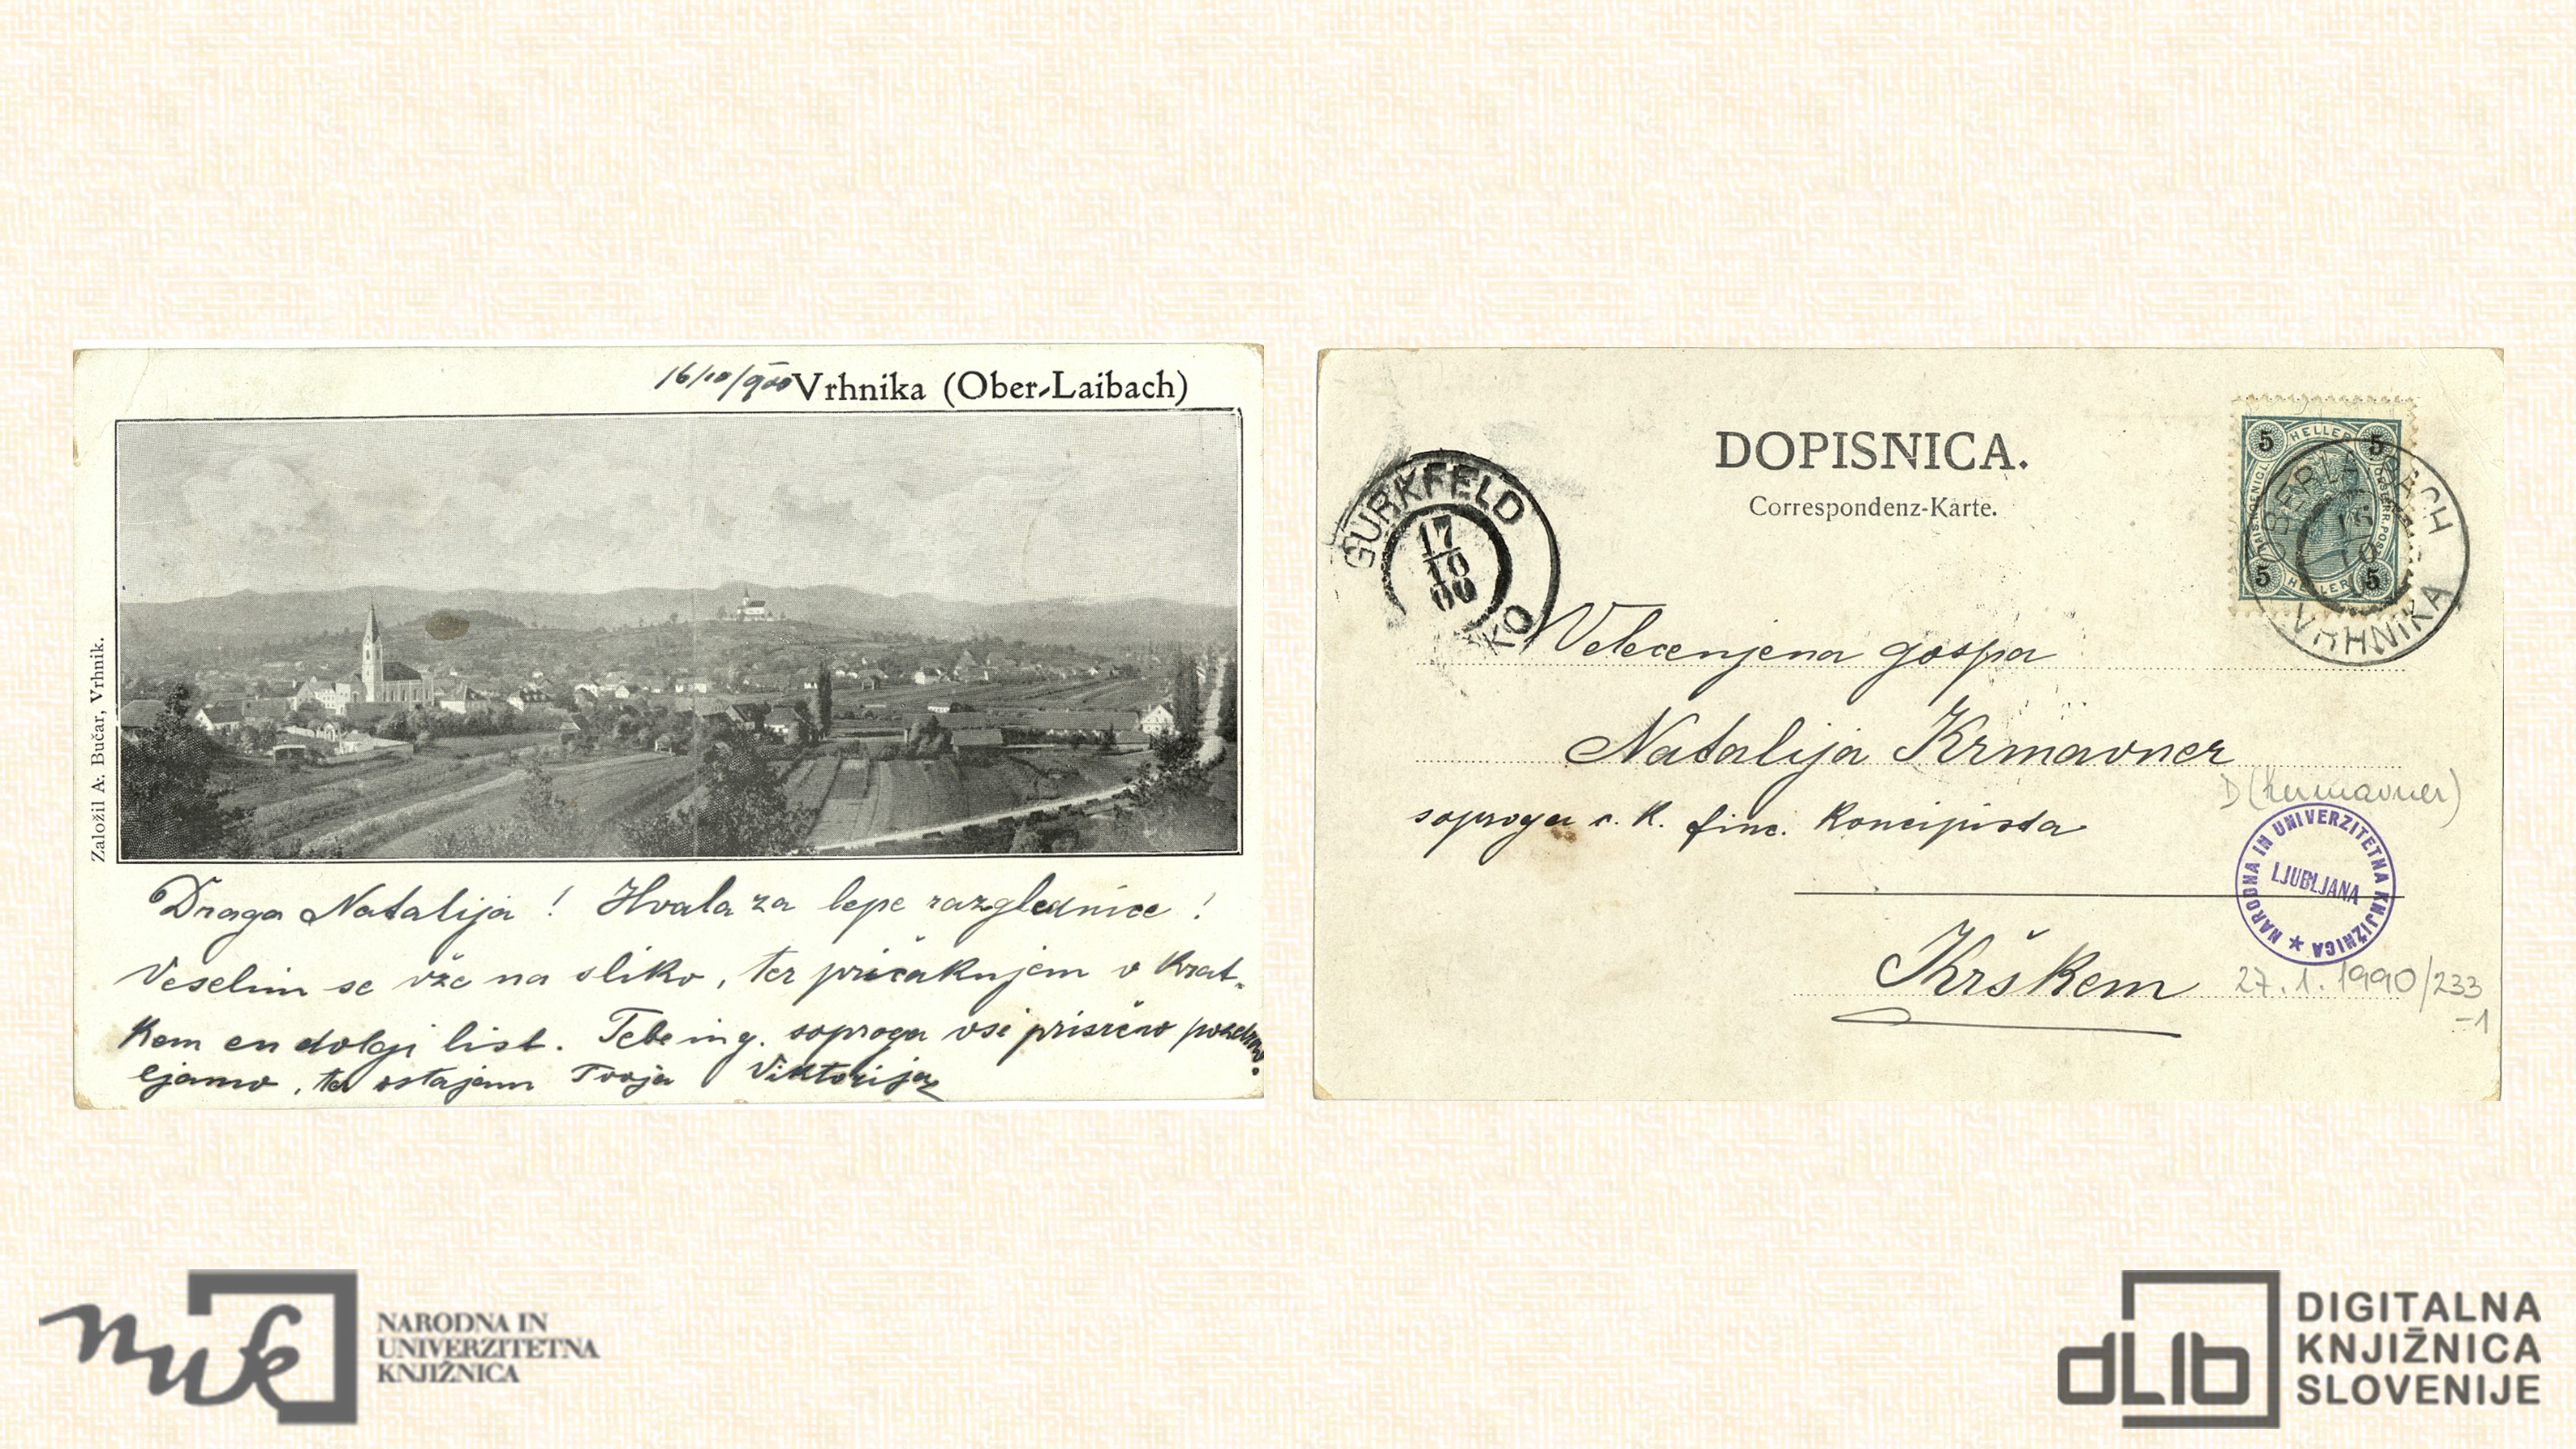 16/10/900 Vrhnika (Ober-Laibach)
Založil A. Bučar, Vrhnik.
Draga Natalija! Hvala za lepe razglednice!
Veselim se vže na sliko, ter pričakujem v krat-
kem en dolgi list. Tebe in g. soproga vsi prisrčno pozdrav-
ljamo, ter ostajam Tvoja Viktorija
DOPISNICA.
Correspondenz-Karte.
GURKFELD
17
10
00
KO
5 HELLER 5
5 HELLER 5
OBERLAIBACH
16
10
VRHNIKA
Velecenjena gospa
Natalija Krmavner
D (Kermavner)
soproga c. k. finc. koncipista
NARODNA IN UNIVERZITETNA KNJIŽNICA ★
LJUBLJANA
Krškem
27.1.1990/233
-1
nuk
NARODNA IN
UNIVERZITETNA
KNJIŽNICA
dLib
DIGITALNA
KNJIŽNICA
SLOVENIJE